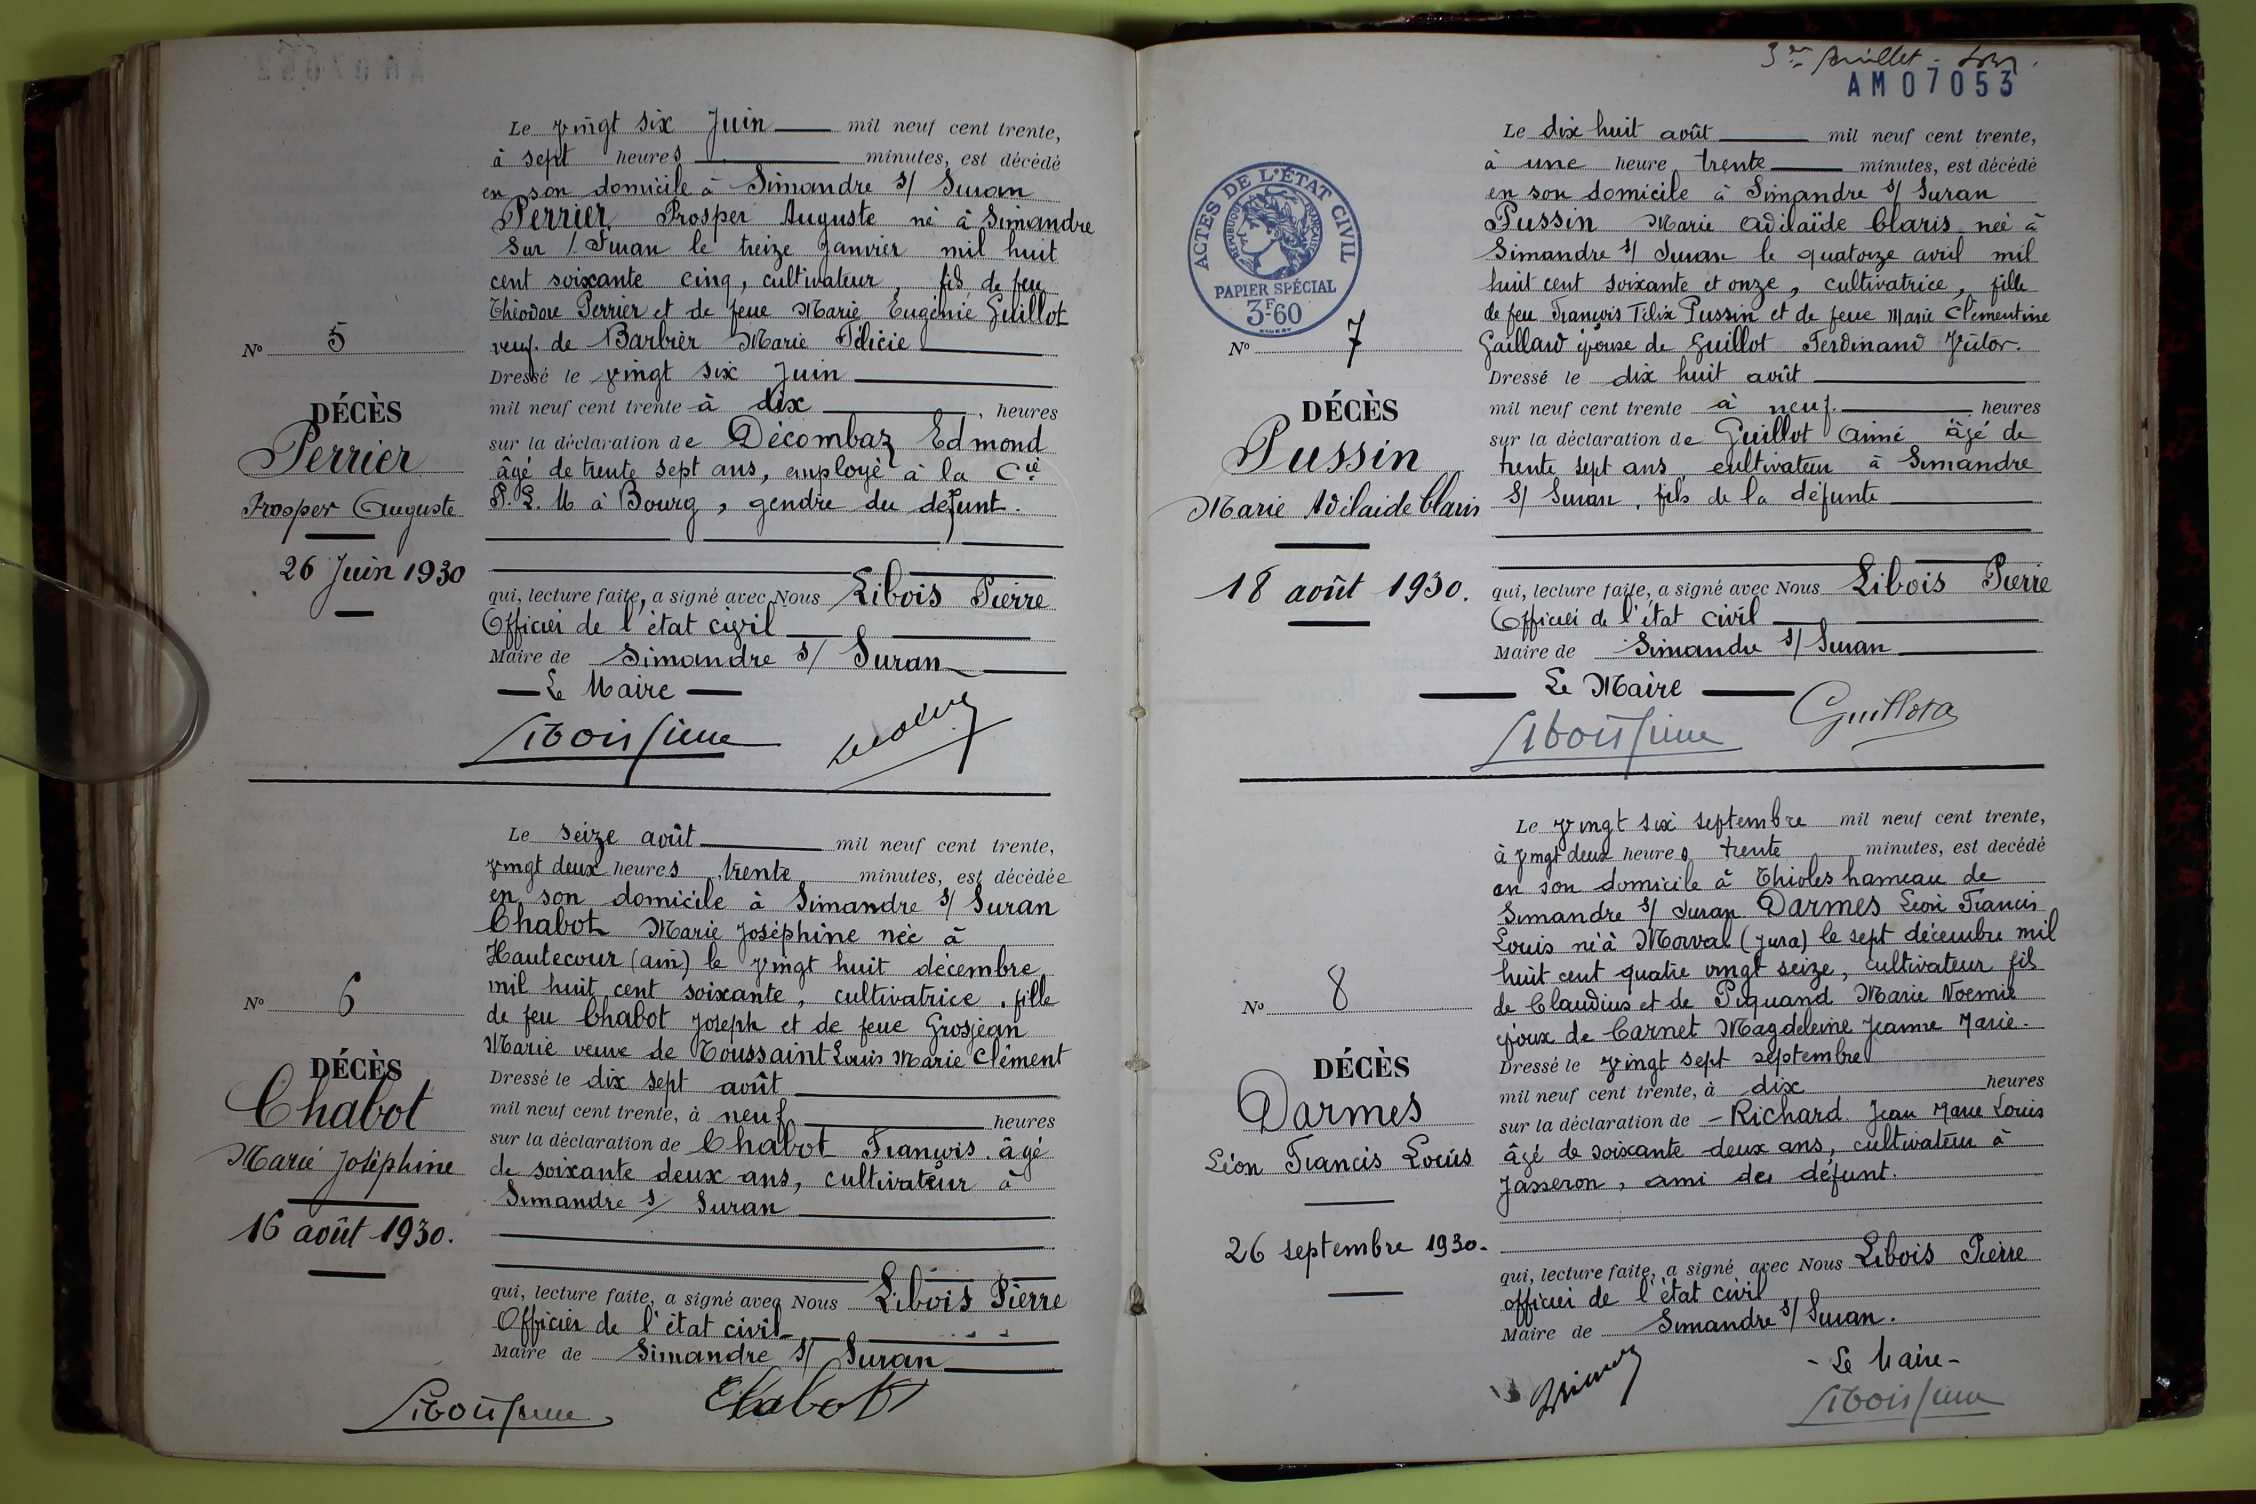 Le vingt six Juin mil neuf cent trente,
à sept heures minutes, est décédé
en son domicile à Simandre s/ Suran
Perrier Prosper Auguste né à Simandre
Sur / Suran le treize Janvier mil huit
cent soixante cinq, cultivateur, fils de feu
Théodore Perrier et de feue Marie Eugénie Guillot
veuf de Barbier Marie Félicie
Dressé le vingt six Juin
mil neuf cent trente à dix, heures
sur la déclaration de Décombaz Edmond
âgé de trente sept ans, employé à la Cie
P. L. M à Bourg, gendre du défunt.
qui, lecture faite, a signé avec Nous Libois Pierre
Officier de l'état civil
Maire de Simandre s/ Suran
Le Maire
Libois Pierre
N° 5
DÉCÈS
Perrier
Prosper Auguste
26 Juin 1930
Le seize août mil neuf cent trente,
vingt deux heures trente minutes, est décédée
en son domicile à Simandre s/ Suran
Chabot Marie Joséphine née à
Hautecour (ain) le vingt huit décembre
mil huit cent soixante, cultivatrice, fille
de feu Chabot Joseph et de feue Grosjean
Marie veuve de Toussaint Louis Marie Clément
Dressé le dix sept août
mil neuf cent trente, à neuf heures
sur la déclaration de Chabot François âgé
de soixante deux ans, cultivateur à
Simandre s/ Suran
qui, lecture faite, a signé avec Nous Libois Pierre
Officier de l'état civil
Maire de Simandre s/ Suran
Libois Pierre Chabot
N° 6
DÉCÈS
Chabot
Marie Joséphine
16 août 1930.
3er Juillet
AM07053
ACTES DE L'ÉTAT CIVIL
RÉPUBLIQUE FRANÇAISE
PAPIER SPÉCIAL
3F60
Le dix huit août mil neuf cent trente,
à une heure trente minutes, est décédé
en son domicile à Simandre s/ Suran
Pussin Marie Adélaïde Claris née à
Simandre s/ Suran le quatorze avril mil
huit cent soixante et onze, cultivatrice, fille
de feu François Félix Pussin et de feue Marie Clémentine
Gaillard épouse de Guillot Ferdinand Victor.
Dressé le dix huit août
mil neuf cent trente à neuf heures
sur la déclaration de Guillot Aimé âgé de
trente sept ans, cultivateur à Simandre
S/ Suran, fils de la défunte
qui, lecture faite, a signé avec Nous Libois Pierre
Officier de l'état civil
Maire de Simandre s/ Suran
Le Maire
Libois Pierre
N° 7
DÉCÈS
Pussin
Marie Adélaide Claris
18 août 1930.
Le vingt six septembre mil neuf cent trente,
à vingt deux heures trente minutes, est decédé
en son domicile à Thioles hameau de
Simandre s/ Suran Darmes Léon Francis
Louis né à Morval (Jura) le sept décembre mil
huit cent quatre vingt seize, cultivateur fils
de Claudius et de Piquand Marie Noemie
époux de Carnet Magdeleine Jeanne Marie.
Dressé le vingt sept septembre
mil neuf cent trente, à dix heures
sur la déclaration de Richard Jean Marie Louis
âgé de soixante deux ans, cultivateur à
Jasseron, ami du défunt.
qui, lecture faite, a signé avec Nous Libois Pierre
officier de l'état civil
Maire de Simandre s/ Suran.
- Le Maire -
Libois Pierre
N° 8
DÉCÈS
Darmes
Léon Francis Louis
26 septembre 1930.